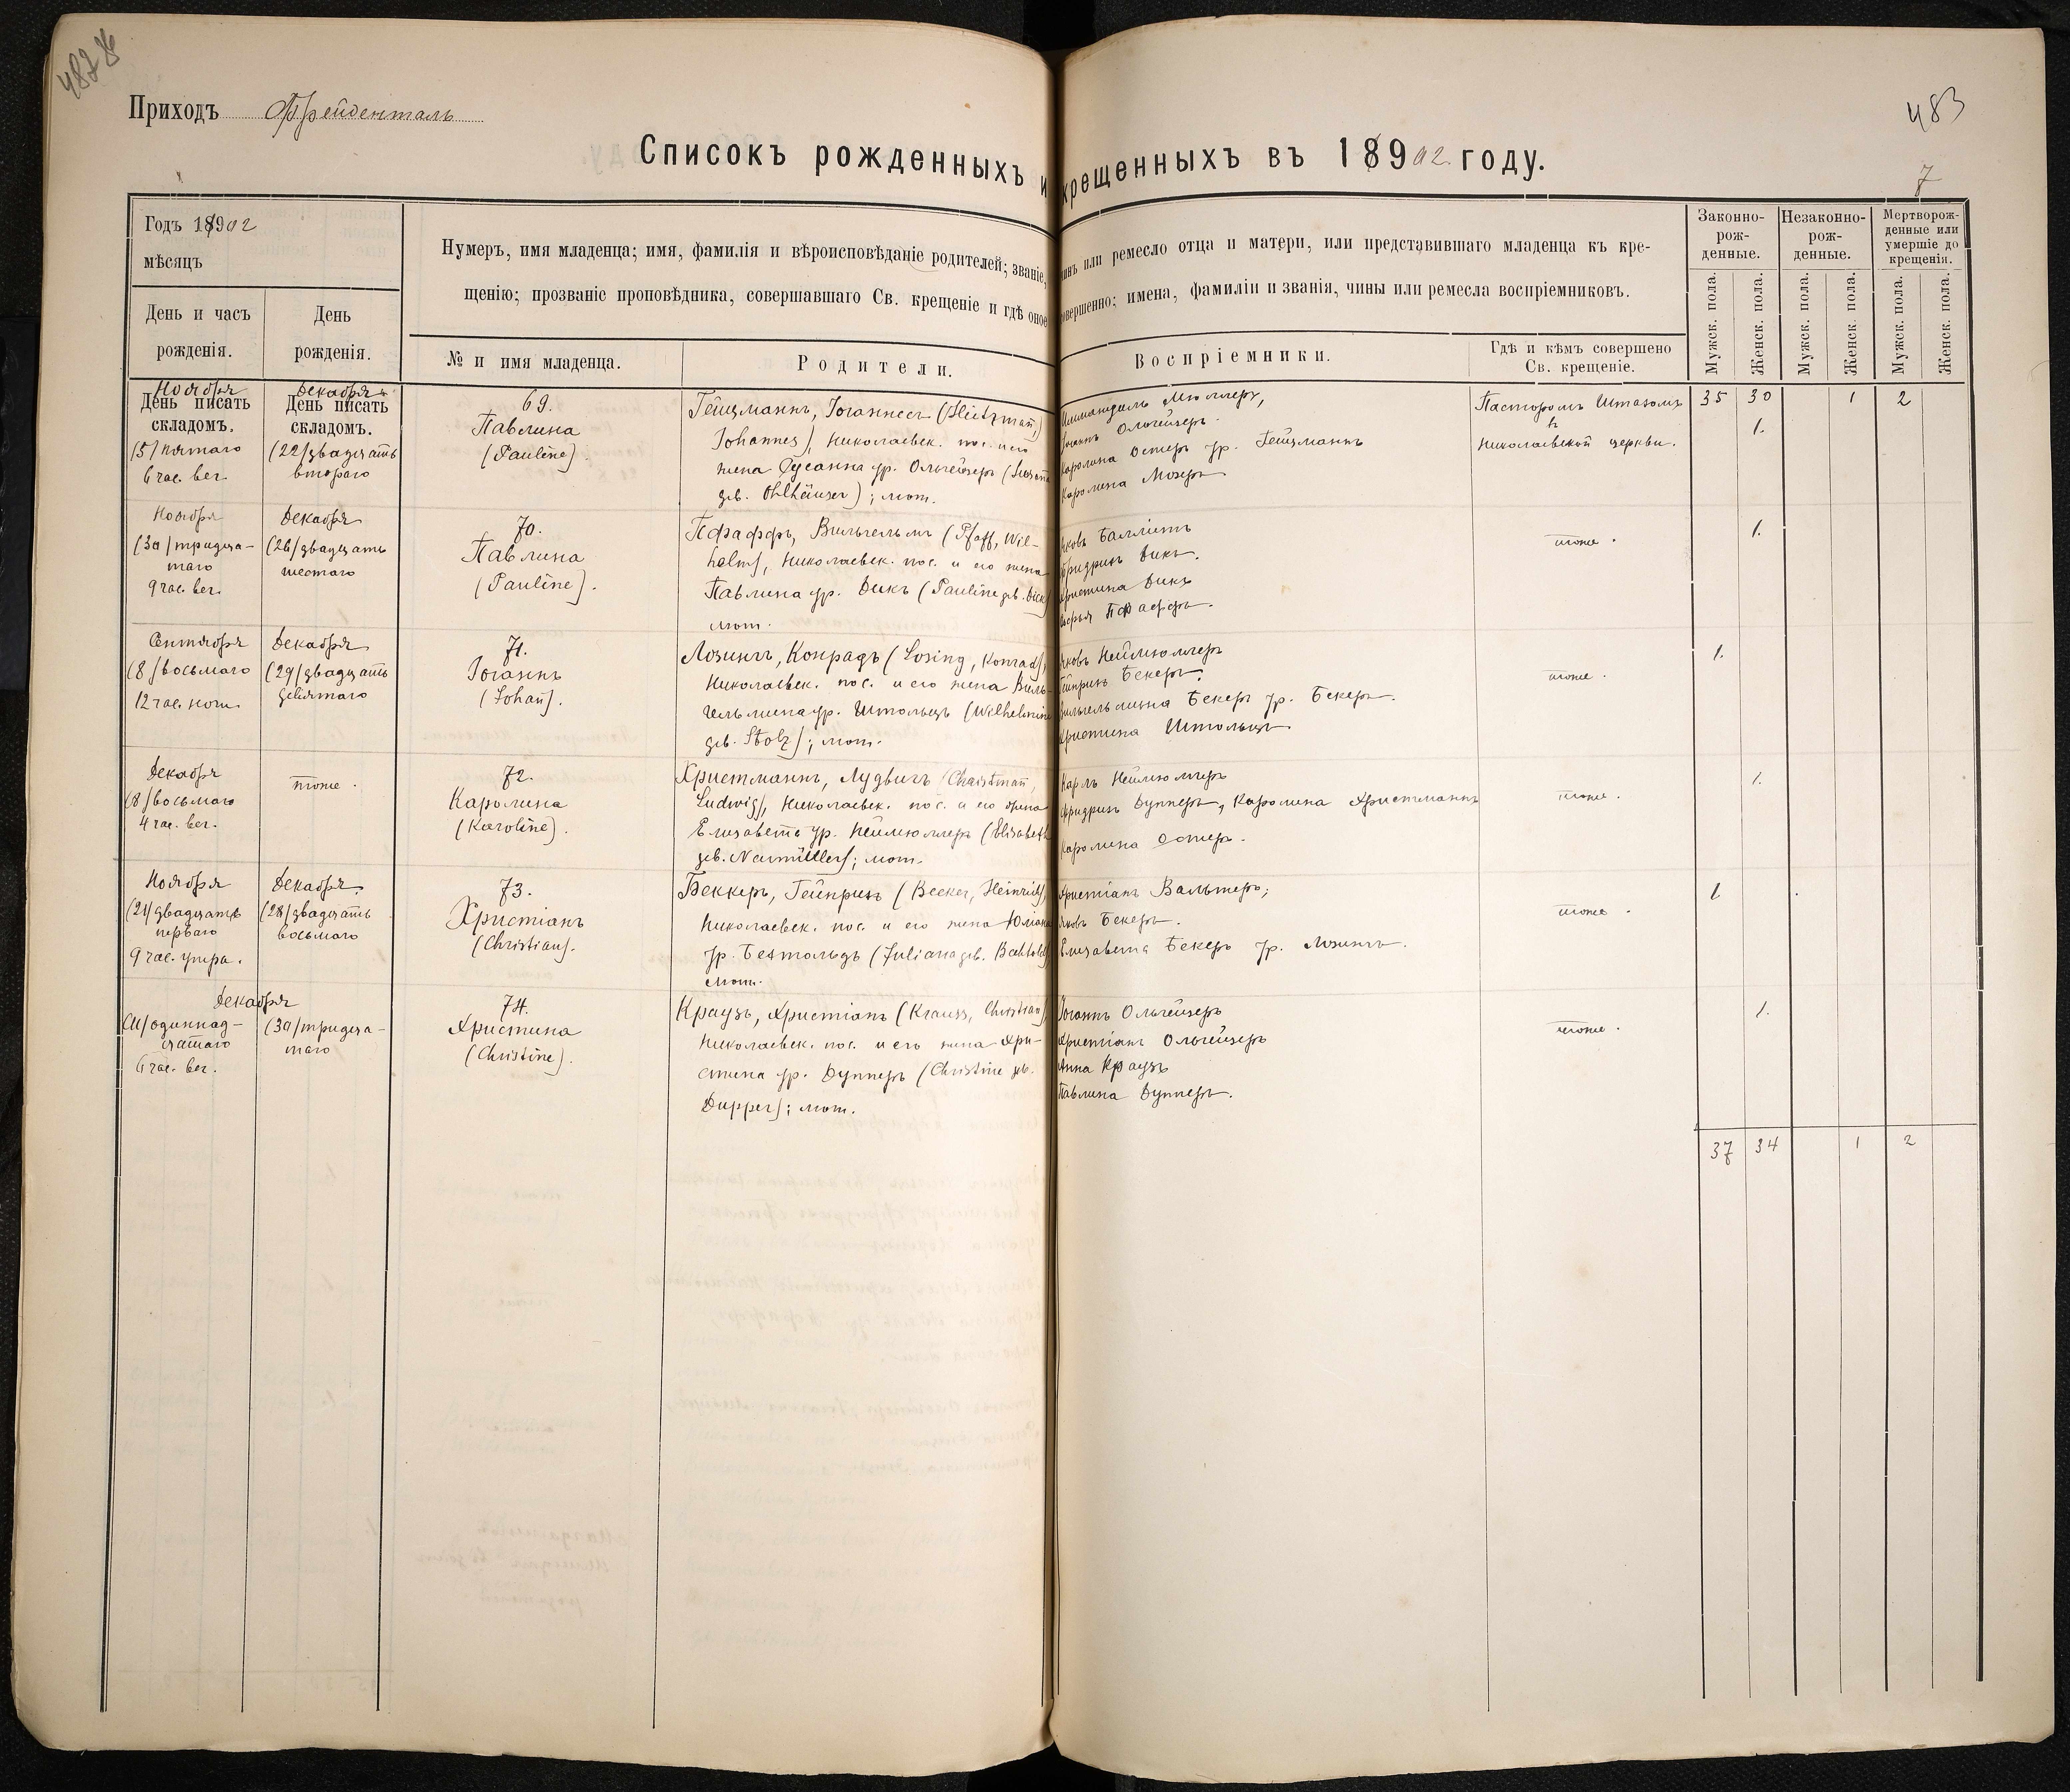 487 об
Приходъ Фрейденталь
483
Списокъ рожденныхъ и крещенныхъ въ 18902 году.
7
Годъ 18902
мѣсяцъ
День и часъ
рожденія.
День
рожденія.
Нумеръ, имя младенца; имя, фамилія и вѣроисповѣданіе родителей; званіе, чинъ или ремесло отца и матери, или представившаго младенца къ кре-
щенію; прозваніе проповѣдника, совершавшаго Св. крещеніе и гдѣ оное совершенно; имена, фамиліи и званія, чины или ремесла воспріемниковъ.
№ и имя младенца.
Родители.
Воспріемники.
Гдѣ и кѣмъ совершено
Св. крещеніе.
Законно-
рож-
денные.
Незаконно-
рож-
денные.
Мертворож-
денные или
умершіе до
крещенія.
Мужск. пола.
Женск. пола.
Мужск. пола.
Женск. пола.
Мужск. пола.
Женск. пола.
Ноября
День писать
складомъ.
(5) пятаго
6 час. веч.
Декабря
День писать
складомъ.
(22) двадцать
втораго
69.
Павлина
(Pauline).
Гейцманнъ, Іоганнесъ (Heitzmañ,
Johannes), Николаевск. пос. и его
жена Сусанна ур. Ольгейзеръ
geb. Ohlhäuser); лют.
Мюллеръ,
Іоганнъ Ольгейзеръ.
Каролина Остеръ ур. Гейцманнъ
Каролина Мозеръ
Пасторомъ Штахомъ
въ
Николаевской церкви.
35 30 1 2
1.
Ноября
(30) тридца-
таго
9 час. веч.
Декабря
(26) двадцать
шестаго
70.
Павлина
(Pauline).
Пфаффъ, Вильгельмъ (Pfaff, Wil-
helm), Николаевск. пос. и его жена
Павлина ур. Дикъ (Pauline geb. Dick)
лют.
Яковъ Баллietъ
Фридрихъ Дикъ.
Христина Дикъ
Софья Пфаффъ.
тоже.
1.
Сентября
(8) восьмаго
12 час. ночи
Декабря
(29) двадцать
девятаго
71.
Іоганнъ
(Johañ).
Лозингъ, Конрадъ (Losing, Konrad),
Николаевск. пос. и его жена Виль-
гельмина ур. Штольцъ (Wilhelmine
geb. Stolz); лют.
Яковъ Неймюллеръ
Гейнрихъ Бекеръ.
Вильгельмина Бекеръ ур. Бекеръ.
Христина Штольцъ.
тоже.
1.
Декабря
(8) восьмаго
4 час. веч.
тоже.
72.
Каролина
(Karoline).
Христманнъ, Лудвигъ (Christmañ,
Ludwig), Николаевск. пос. и его жена
Елизавета ур. Неймюллеръ (Elisabeth
geb. Neumüller); лют.
Карлъ Неймюллеръ
Фридрихъ Дупперъ, Каролина Христманнъ
Каролина Остеръ.
тоже.
1.
Ноября
(21) двадцать
перваго
9 час. утра.
Декабря
(28) двадцать
восьмаго
73.
Христіанъ
(Christian).
Беккеръ, Гейнрихъ (Becker, Heinrich),
Николаевск. пос. и его жена Юліана
ур. Бехтольдъ (Juliana geb. Bechtold)
лют.
Христіанъ Вальтеръ;
Яковъ Бекеръ.
Елизавета Бекеръ ур. Лозингъ.
тоже.
1
Декабря
(11) одиннад-
цатаго
6 час. веч.
(30) тридца-
таго
74.
Христина
(Christine).
Краузъ, Христіанъ (Krauss, Christian),
Николаевск. пос. и его жена Хри-
стина ур. Дупперъ (Christine geb.
Dupper); лют.
Іоганнъ Ольгейзеръ
Христіанъ Ольгейзеръ
Анна Краузъ
Павлина Дупперъ.
тоже.
1.
37 34 1 2